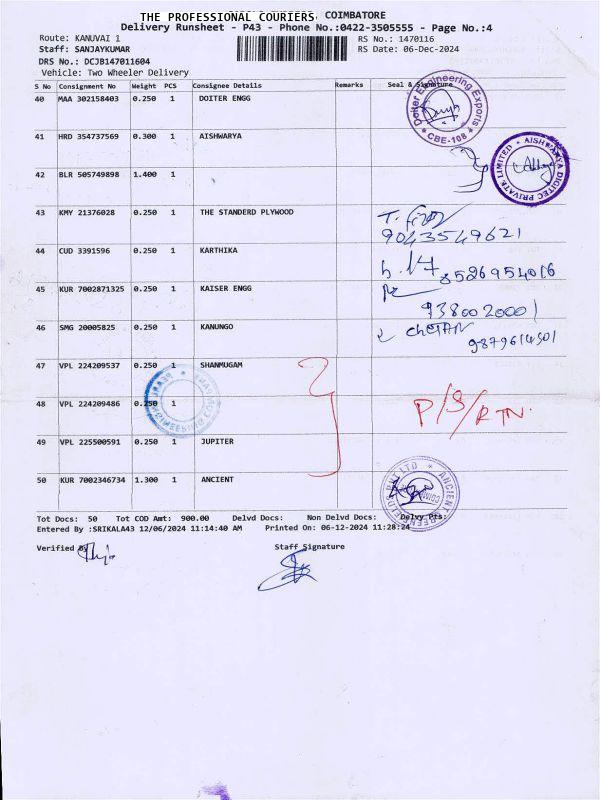 THE PROFESSIONAL COURIERS COIMBATORE
Delivery Runsheet - P43 - Phone No.:0422-3505555 - Page No.:4
Route: KANUVAI 1 RS No.: 1470116
Staff: SANJAYKUMAR RS Date: 06-Dec-2024
DRS No.: DCJB147011604
Vehicle: Two Wheeler Delivery
S No Consignment No Weight PCS Consignee Details Remarks Seal & Signature
40 MAA 302158403 0.250 1 DOITER ENGG
Doiter Engineering Exports
* CBE-108 *
41 HRD 354737569 0.300 1 AISHWARYA
AISHWARYA DIGITEC PRIVATE LIMITED
42 BLR 505749898 1.400 1
43 KMY 21376028 0.250 1 THE STANDERD PLYWOOD
9043549621
44 CUD 3391596 0.250 1 KARTHIKA
8526954016
45 KUR 7002871325 0.250 1 KAISER ENGG
9380020001
46 SMG 20005825 0.250 1 KANUNGO
CHETAN
9879614501
47 VPL 224209537 0.250 1 SHANMUGAM
48 VPL 224209486 0.250 1
P/S/RTN.
49 VPL 225500591 0.250 1 JUPITER
50 KUR 7002346734 1.300 1 ANCIENT
ANCIENT GREENFIELDS PVT LTD
Tot Docs: 50 Tot COD Amt: 900.00 Delvd Docs: Non Delvd Docs: Delvy Pts:
Entered By :SRIKALA43 12/06/2024 11:14:40 AM Printed On: 06-12-2024 11:28:24
Verified By Staff Signature